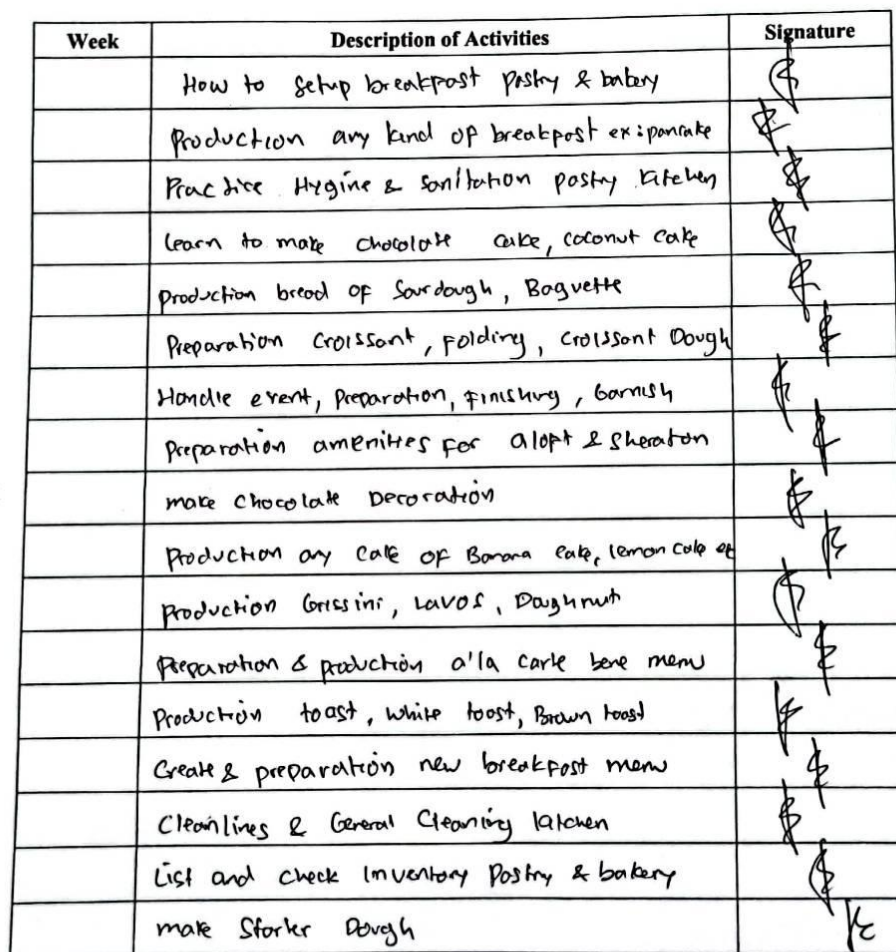 Week Description of Activities Signature
How to setup breakfast pastry & bakery
Production any kind of breakfast ex: pancake
Practice Hygine & sanitation pastry kitchen
Learn to make chocolate cake, coconut cake
Production bread of Sourdough, Baguette
Preparation Croissant, Folding, Croissant Dough
Handle event, Preparation, Finishing, Garnish
Preparation amenities for aloft & Sheraton
make chocolate Decoration
Production any cake of Banana cake, lemon cake et
Production Grissini, Lavos, Doughnut
Preparation & production a'la carte bene menu
Production toast, white toast, Brown toast
Create & preparation new breakfast menu
Cleanlines & General Cleaning kitchen
List and check Inventory Pastry & bakery
make Starter Dough